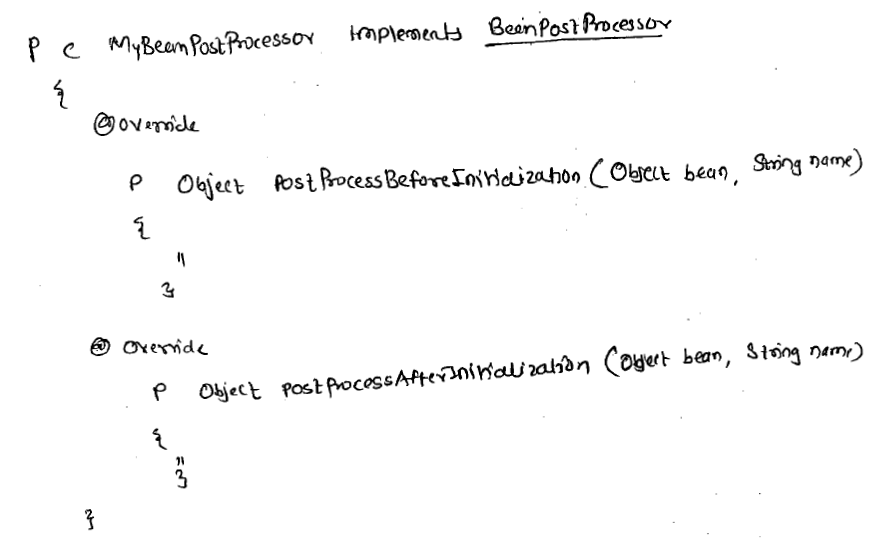 P C MyBeanPostProcessor implements BeanPostProcessor
{
@Override
P Object PostProcessBeforeInitialization (Object bean, String name)
{
"
}
@ Override
P Object PostProcessAfterInitialization (Object bean, String name)
{
"
}
}